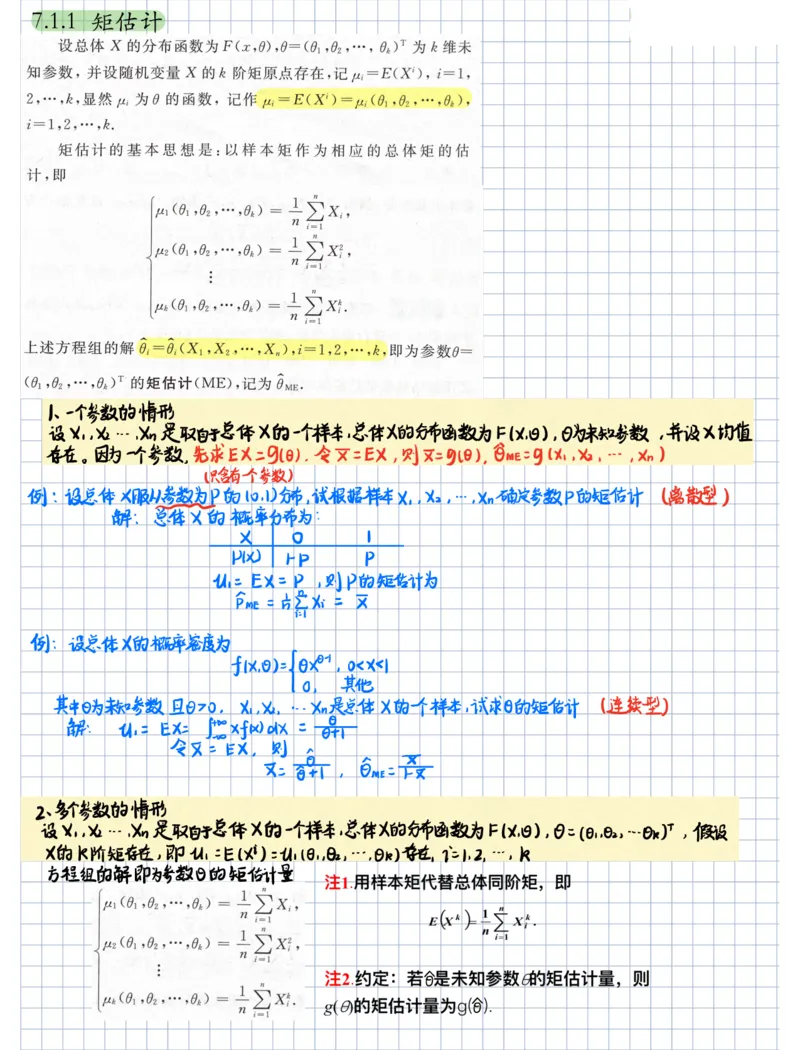 7.1.1 矩估计
设总体 X 的分布函数为F(x,θ),θ=(θ₁,θ₂,⋯, θₖ)ᵀ 为 k 维未
知参数, 并设随机变量 X 的 k 阶矩原点存在,记 μᵢ=E(Xⁱ), i=1,
2,⋯,k,显然 μᵢ 为 θ 的函数, 记作 μᵢ=E(Xⁱ)=μᵢ(θ₁,θ₂,⋯,θₖ),
i=1,2,⋯,k.
矩估计的基本思想是:以样本矩作为相应的总体矩的估
计,即
μ₁(θ₁,θ₂,⋯,θₖ) = 1/n ∑ᵢ₌₁ⁿ Xᵢ,
μ₂(θ₁,θ₂,⋯,θₖ) = 1/n ∑ᵢ₌₁ⁿ Xᵢ²,
⋮
μₖ(θ₁,θ₂,⋯,θₖ) = 1/n ∑ᵢ₌₁ⁿ Xᵢᵏ.
上述方程组的解 θ̂ᵢ=θ̂ᵢ(X₁,X₂,⋯,Xₙ),i=1,2,⋯,k,即为参数θ=
(θ₁,θ₂,⋯,θₖ)ᵀ 的矩估计(ME),记为 θ̂ME.
1、一个参数的情形
设 X₁,X₂ ⋯,Xₙ 是取自于总体 X的一个样本,总体X的分布函数为F(X,θ),θ为未知参数,并设X均值
存在。因为一个参数,先求EX=g(θ). 令X̄=EX,则X̄=g(θ), θ̂ME=g(X₁,X₂,⋯,Xₙ)
(只含有一个参数)
例: 设总体 X服从参数为P的(0,1)分布,试根据样本X₁,X₂,⋯,Xₙ确定参数P的矩估计 (离散型)
解: 总体X的概率分布为:
X 0 1
P(X) 1-P P
u₁= EX= P ,则P的矩估计为
P̂ME = 1/n ∑ᵢ₌₁ⁿ Xi = X̄
例: 设总体X的概率密度为
f(X,θ)={ θX^(θ-1) , 0<X<1
0, 其他
其中θ为未知参数 且θ>0, X₁,X₂, ⋯Xₙ是总体X的一个样本,试求θ的矩估计 (连续型)
解: u₁= EX= ∫₋∞⁺∞ xf(x)dx = θ/(θ+1)
令X̄= EX, 则
X̄= θ̂/(θ̂+1) , θ̂ME= X̄/(1-X̄)
2、多个参数的情形
设 X₁,X₂ ⋯,Xₙ 是取自于总体 X的一个样本,总体X的分布函数为F(X,θ),θ=(θ₁,θ₂,⋯θk)ᵀ, 假设
X的K阶矩存在,即 u₁=E(Xⁱ)=u₁(θ₁,θ₂,⋯,θk)存在, i=1,2,⋯,k
方程组的解即为参数θ的矩估计量
μ₁(θ₁,θ₂,⋯,θₖ) = 1/n ∑ᵢ₌₁ⁿ Xᵢ,
μ₂(θ₁,θ₂,⋯,θₖ) = 1/n ∑ᵢ₌₁ⁿ Xᵢ²,
⋮
μₖ(θ₁,θ₂,⋯,θₖ) = 1/n ∑ᵢ₌₁ⁿ Xᵢᵏ.
注1.用样本矩代替总体同阶矩，即
E(Xᵏ)=1/n ∑ᵢ₌₁ⁿ Xᵢᵏ.
注2.约定：若θ̂是未知参数θ的矩估计量，则
g(θ)的矩估计量为g(θ̂).